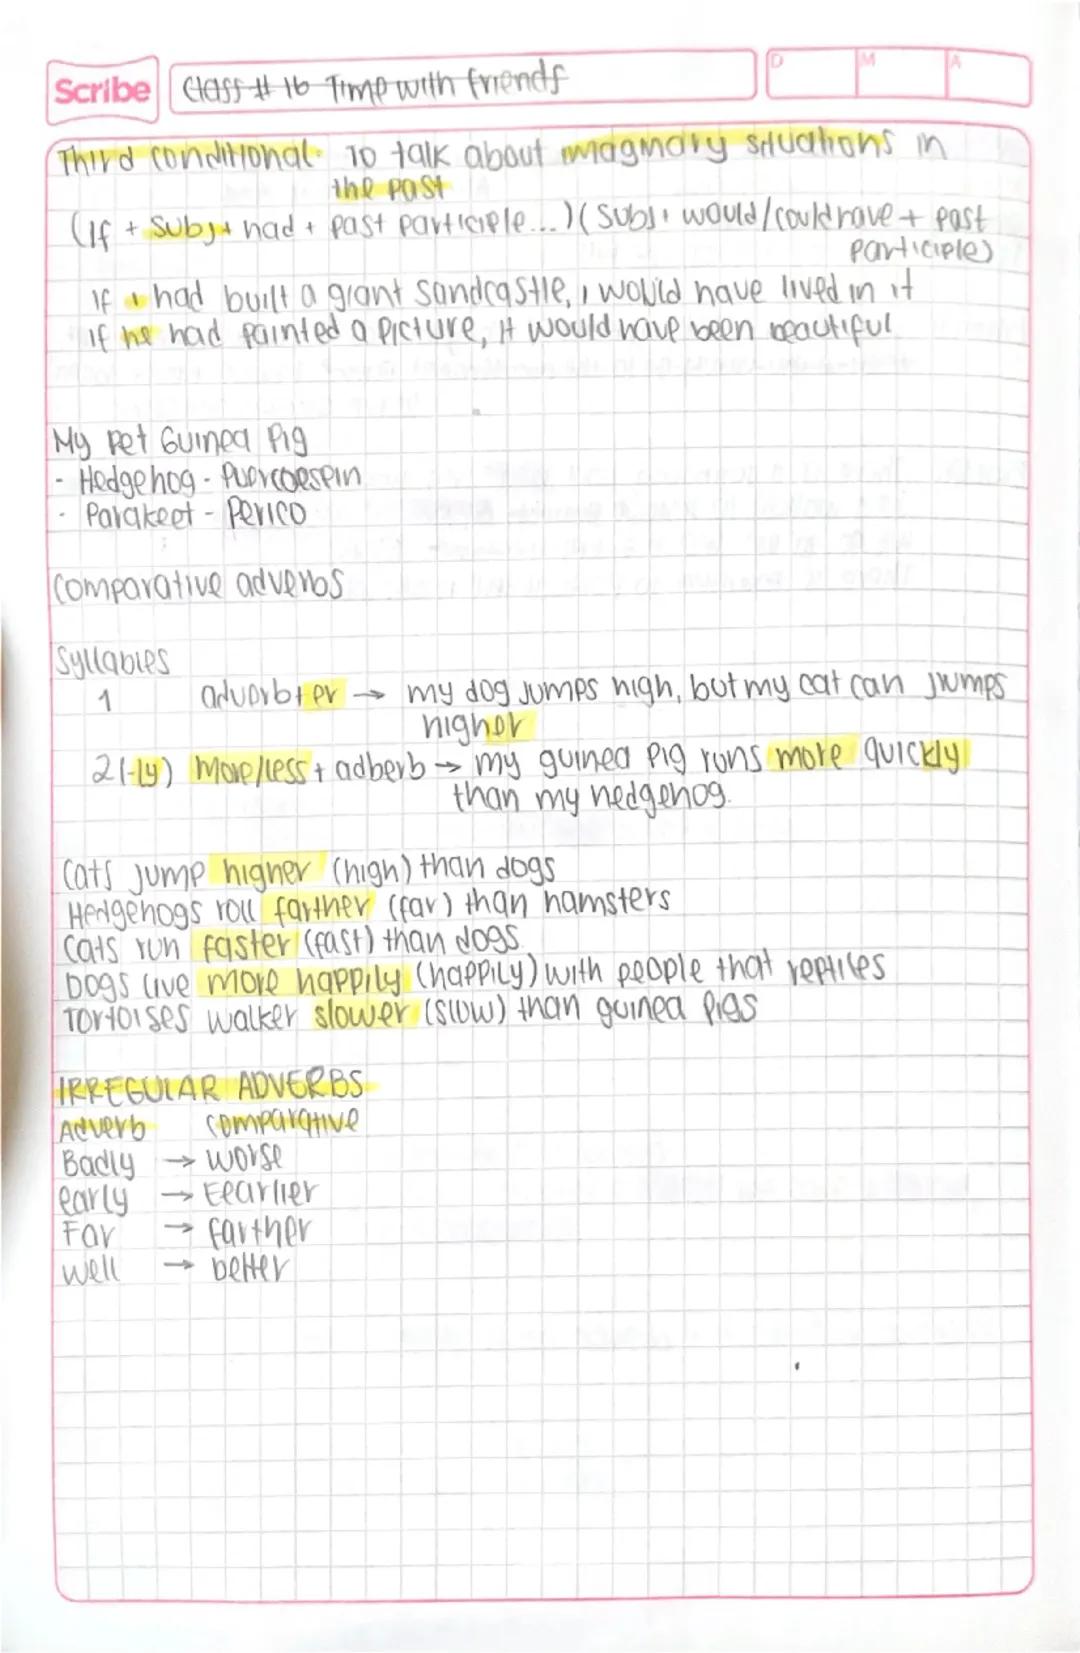 Scribe
Class # 16 Time with friends
D M A
Third conditional: To talk about imaginary situations in
the past
(If + subj + had + past participle...) (subj + would/could have + past
participle)
If I had built a giant sandcastle, I would have lived in it
If he had painted a picture, it would have been beautiful
My pet Guinea Pig
- Hedgehog - Puercoespin
- Parakeet - Perico
Comparative adverbs
Syllables
1 adverb + er → my dog jumps high, but my cat can jumps
higher
2 (-ly) More/less + adberb → my guinea pig runs more quickly
than my hedgehog.
Cats jump higher (high) than dogs
Hedgehogs roll farther (far) than hamsters
Cats run faster (fast) than dogs.
Dogs live more happily (happily) with people that reptiles
Tortoises walker slower (slow) than guinea pigs
IRREGULAR ADVERBS
Adverb comparative
Badly → worse
early → Eearlier
Far → farther
well → better